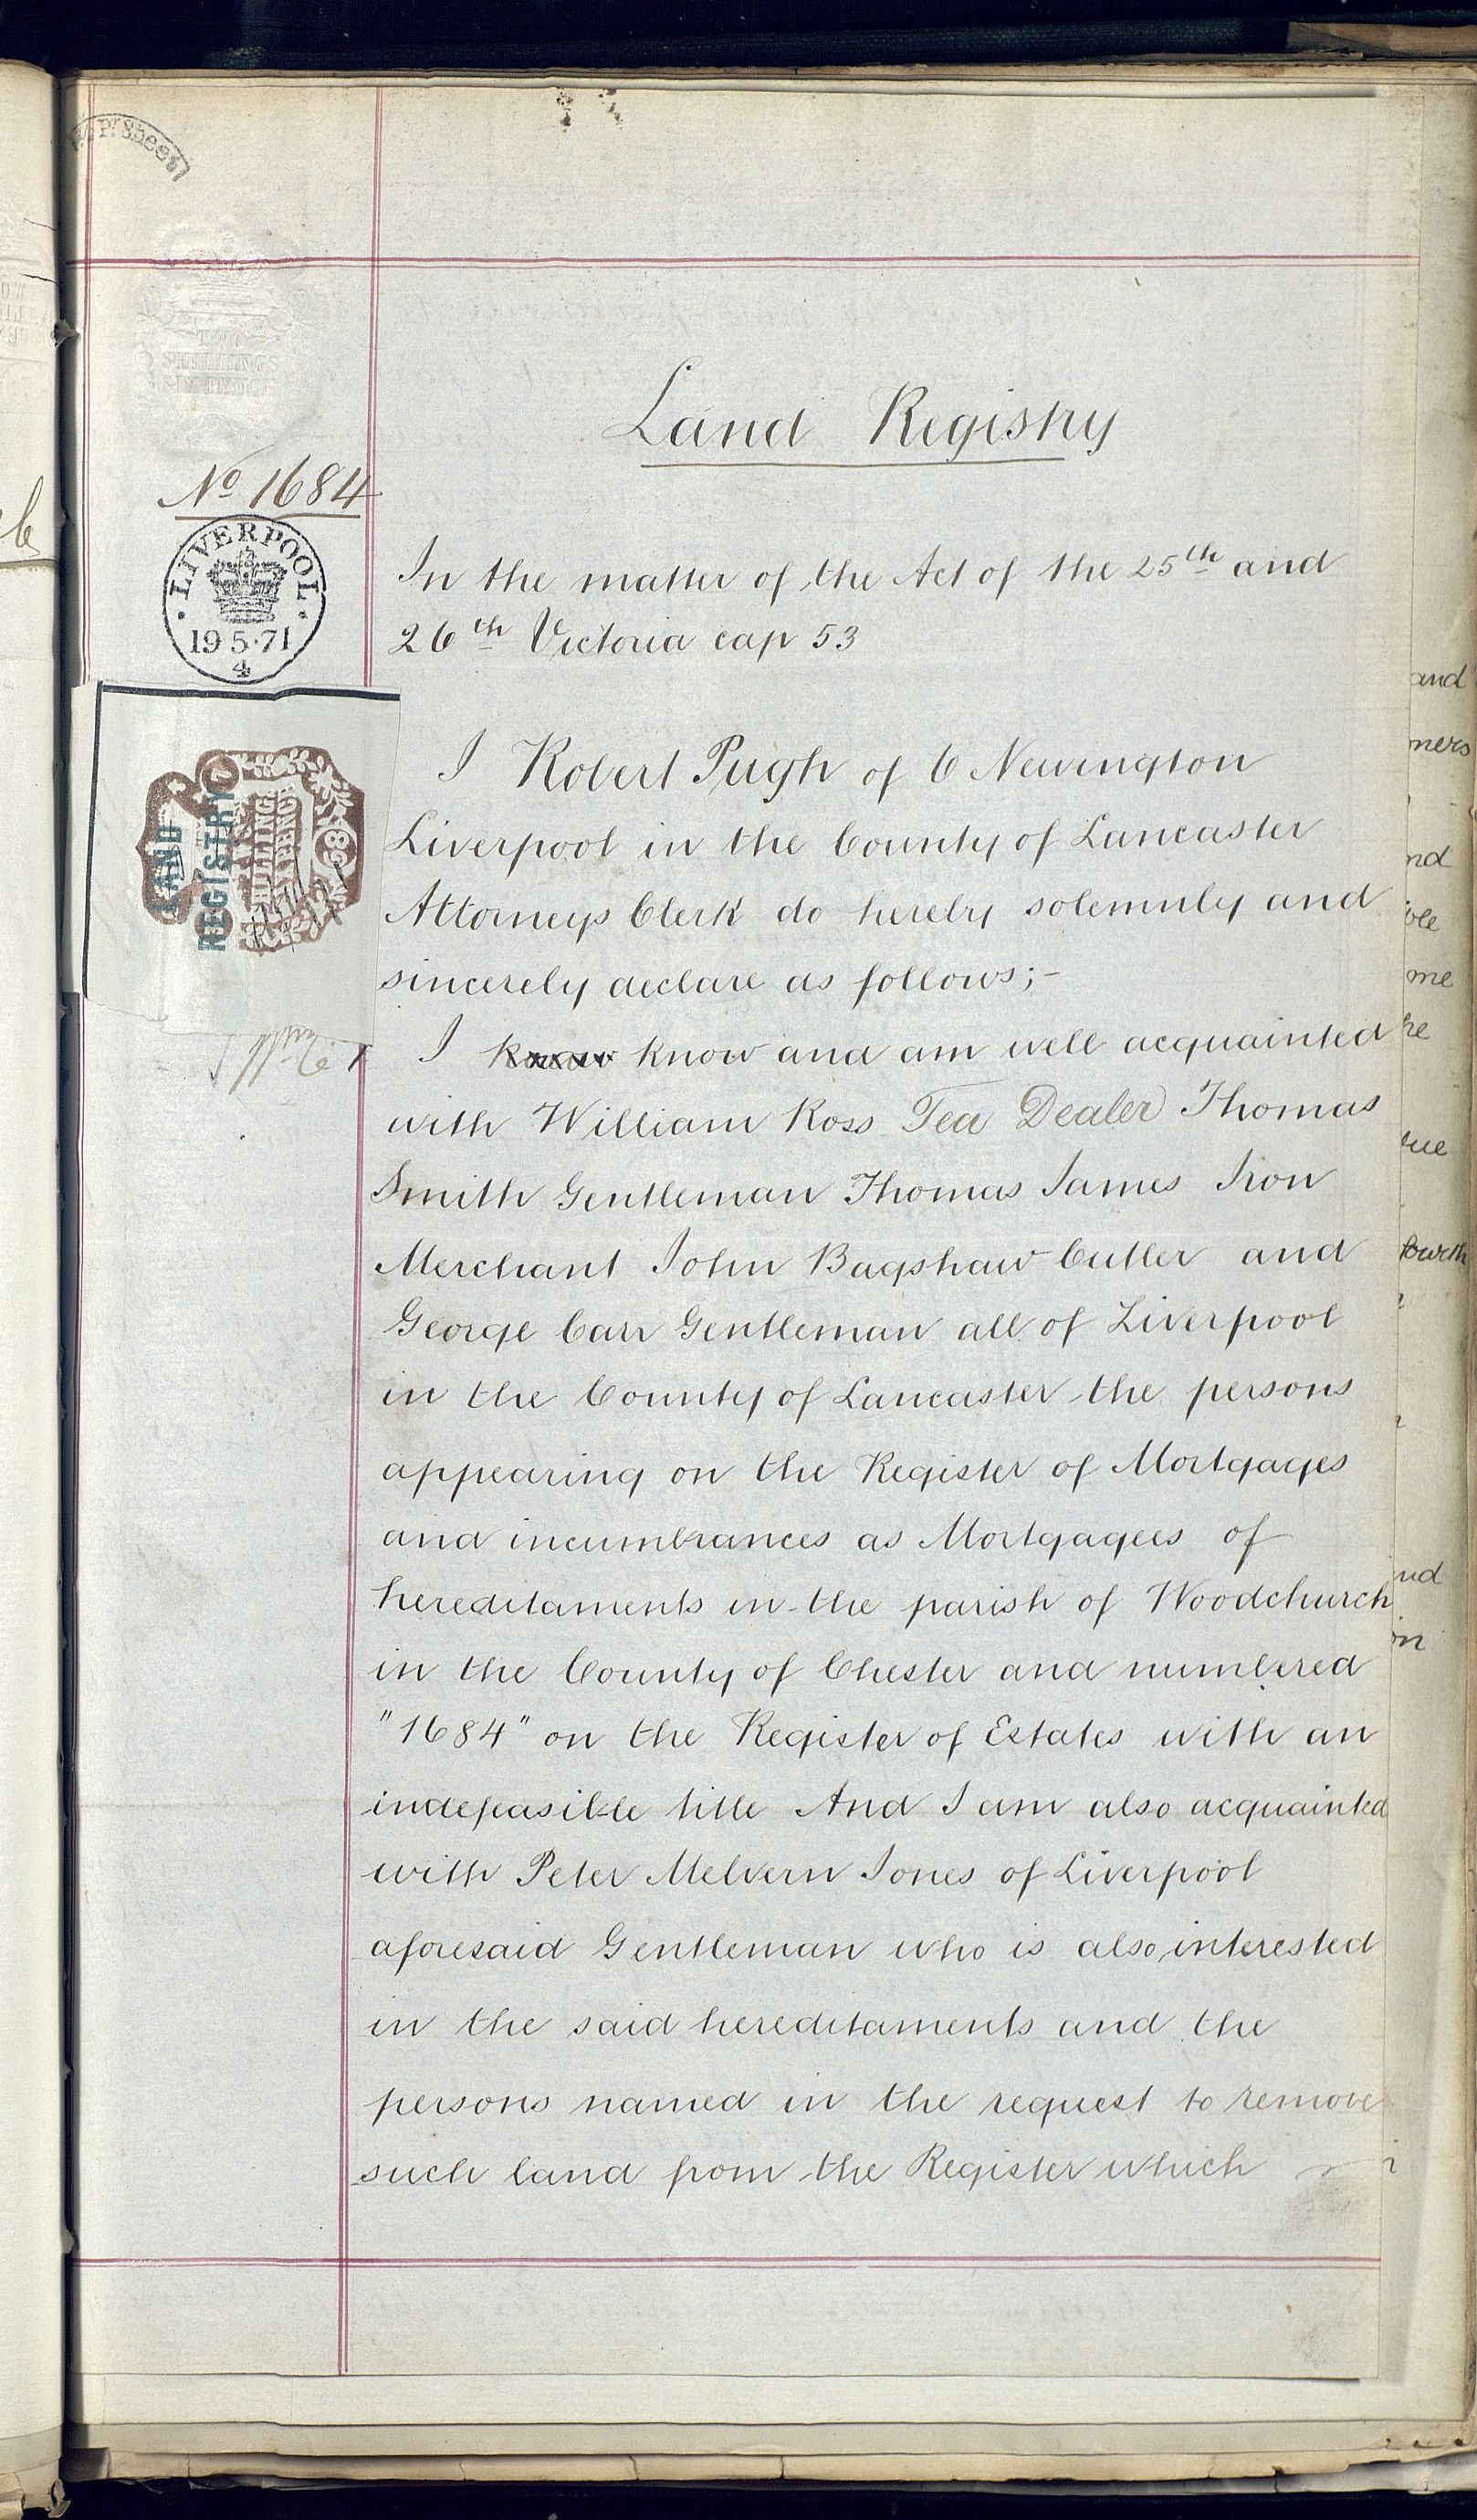 Pr Sheet
TWO
SHILLINGS
SIX PENCE
Land Registry
No 1684
LIVERPOOL
19 5·71
4
In the matter of the Act of the 25th and
26th Victoria cap 53
LAND
REGISTRY
I Robert Pugh of 6 Newington
Liverpool in the County of Lancaster
Attorneys Clerk do hereby solemnly and
sincerely declare as follows;-
I know know and am well acquainted
with William Ross Tea Dealer Thomas
Smith Gentleman Thomas James Iron
Merchant John Bagshaw Cutler and
George Carr Gentleman all of Liverpool
in the County of Lancaster the persons
appearing on the Register of Mortgages
and incumbrances as Mortgagees of
hereditaments in the parish of Woodchurch
in the County of Chester and numbered
"1684" on the Register of Estates with an
indefeasible title And I am also acquainted
with Peter Melvern Jones of Liverpool
aforesaid Gentleman who is also interested
in the said hereditaments and the
persons named in the request to remove
such land from the Register which
and
mers
nd
ble
me
he
nd
in